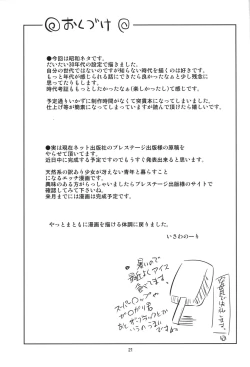 @ おくづけ @
●今回は昭和ネタです。
だいたい30年代の設定で描きました。
自分の世代ではないのですが知らない時代を描くのは好きです。
もっと年代が感じられる話にできたら良かったなぁと少し残念に
思ってたりもします。
時代考証ももっとしたかったなぁ(楽しかったし)て感じです。
予定通りいかずに制作時間がなくて突貫本になってしまいました。
仕上げ等が簡素になってしまっていますが読んで頂けたら嬉しいです。
●実は現在ネット出版社のプレステージ出版様の原稿を
やらせて頂いてます。
近日中に完成する予定ですのでもうすぐ発表出来ると思います。
天然系の訳あり少女が冴えない青年と暮らすこと
になるエッチ漫画です。
興味のある方がいらっしゃいましたらプレステージ出版様のサイトで
確認してみて下さいね。
来月までには漫画は完成予定です。
やっとまともに漫画を描ける体調に戻りました。
いさわのーり
暑いので
最近よくアイス
食べてます。
21